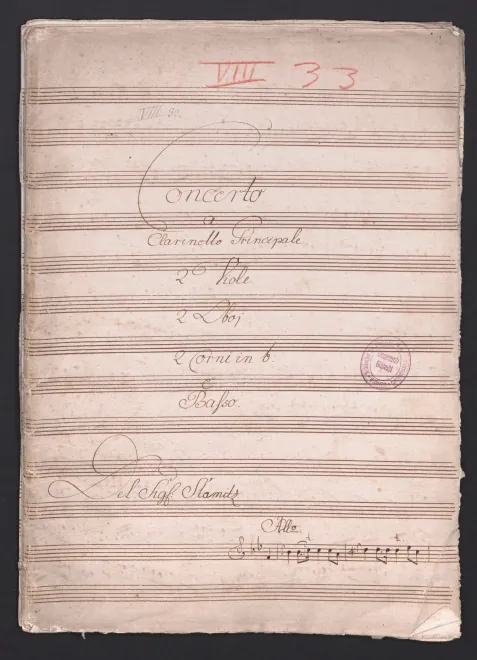 VIII 33
VIII. 30.
Concerto
a
Clarinetto Principale
2 Viole
2 Oboi
2 Corni in b.
e
Basso.
Del Sigr Stamitz
Allo